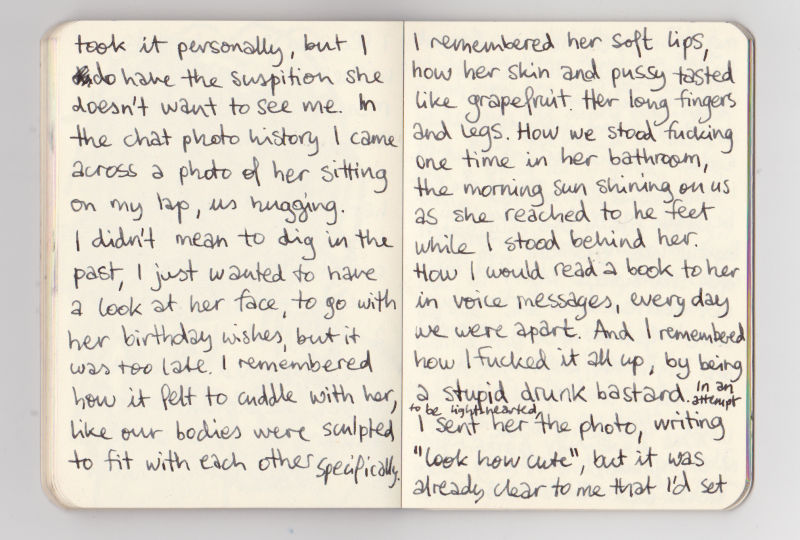 took it personally, but I
do have the suspition she
doesn't want to see me. In
the chat photo history I came
across a photo of her sitting
on my lap, us hugging.
I didn't mean to dig in the
past, I just wanted to have
a look at her face, to go with
her birthday wishes, but it
was too late. I remembered
how it felt to cuddle with her,
like our bodies were sculpted
to fit with each other specifically.
I remembered her soft lips,
how her skin and pussy tasted
like grapefruit. Her long fingers
and legs. How we stood fucking
one time in her bathroom,
the morning sun shining on us
as she reached to he feet
while I stood behind her.
How I would read a book to her
in voice messages, every day
we were apart. And I remembered
how I fucked it all up, by being
a stupid drunk bastard. In an attempt
to be lighthearted,
I sent her the photo, writing
"look how cute", but it was
already clear to me that I'd set